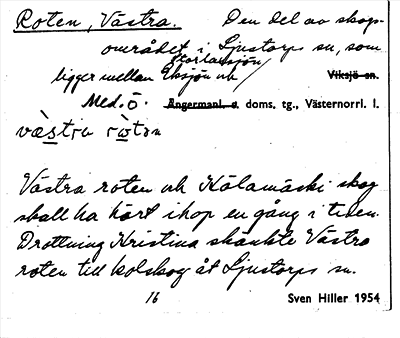 Roten, Västra. Den del av skogs-
området i Ljustorps sn, som
Storlaxsjön
ligger mellan Eksjön och
Viksjö sn.
Med. ö. Ångermanl. s. doms. tg., Västernorrl. l.
væ̀stra rὼtən
Västra roten och Kälamäski skog
skall ha hört ihop en gång i tiden.
Drottning Kristina skänkte Västra
roten till kolskog åt Ljustorps sn.
16 Sven Hiller 1954